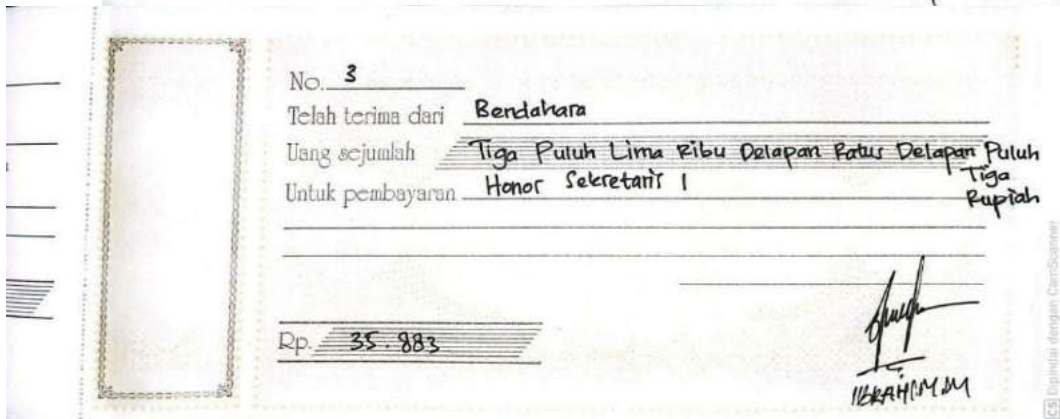 No. 3
Telah terima dari Bendahara
Uang sejumlah Tiga Puluh Lima Ribu Delapan Ratus Delapan Puluh
Tiga
Rupiah
Untuk pembayaran Honor Sekretaris 1
Rp. 35.883
IBRAHIM.M
CS Dipindai dengan CamScanner